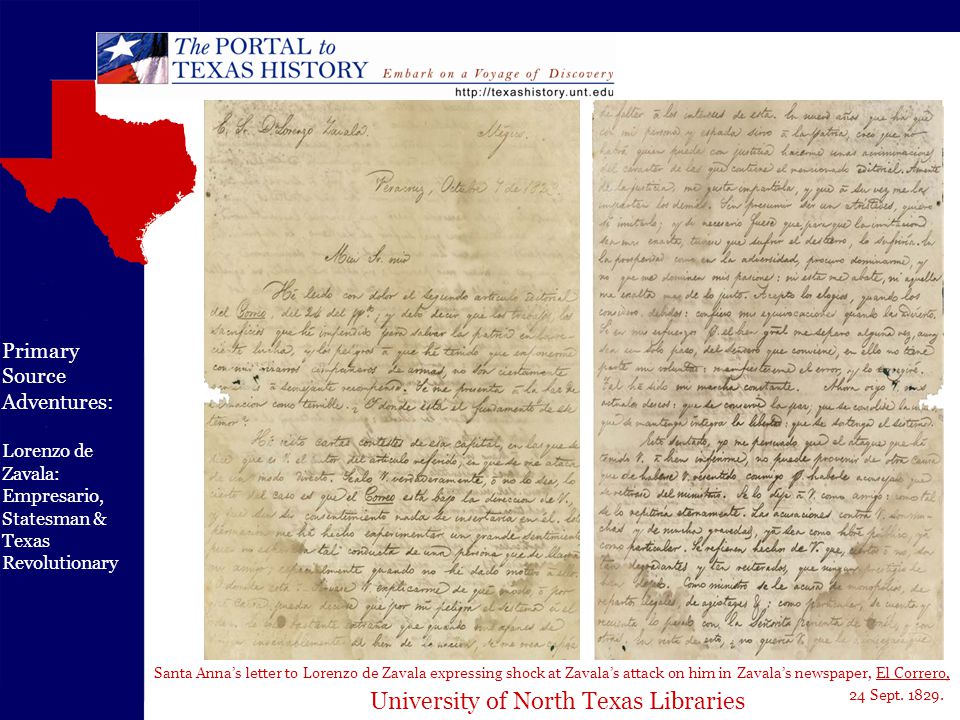 The PORTAL to
TEXAS HISTORY
Embark on a Voyage of Discovery
http://texashistory.unt.edu
Primary
Source
Adventures:
Lorenzo de
Zavala:
Empresario,
Statesman &
Texas
Revolutionary
E. Sr. Dn Lorenzo Zavala. Megico.
Veracruz, Octubre 7 de 1829.
Mui Sr. mio
Hé leido con dolor el segundo articulo editorial
del Correo, del 24 del pp.do; y debo decir que los trabajos, los
sacrificios que hé impendido para salvar la patria en la
ciente lucha, y los peligros á que hé tenido que esponerme
con mis bizarros compañeros de armas, no son ciertamente
á semejante recompensa. Se me presenta á la faz de
nacion como temible. ¿Y donde está el fundamento de ese
temor?
Hé visto cartas contestes de esa capital, en las que se
dice que es V. el autor del articulo referido, en que se me ataca
de un modo directo. Sealo V. verdaderamente, ó no lo sea, lo
cierto del caso es que el Correo está bajo la direccion de V.,
su consentimiento nada se insertaria en el.
me há hecho experimentar un grande sentimiento
tal conducta de una persona que se llama
mi amigo, especialmente quando no hé dado motivo á
V. esplicarme de que modo, ó por
que por mi peligra el sistema
bastante estraña que quando
el bien de la nacion,
de faltar á los intereses de esta. En nueve años que há que
con mi persona y espada sirvo á la patria, creo que no
habrá quien pueda con justicia hacerme unas acriminaciones
del carácter de las que contiene el mencionado editorial. Amante
de la justicia, me gusta impartirla, y que á su vez me la
impartan los demas. Sin presumir ser un Aristides, quiero
sí imitarle; y si necesario fuese que para que la imitacion
sea mas exacta, tuviese que sufrir el destierro, lo sufriria. En
la prosperidad como en la adversidad, procuro dominarme, y
no que me dominen mis pasiones: ni esta me abate, ni aquella
me exalta mas de lo justo. Acepto los elogios, quando los
considero debidos: confieso mis equivocaciones quando las advierto.
Si en mis esfuerzos p.r el bien gral me separo alguna vez, aunq.
sea un solo paso, del sendero que conviene, en ello no tiene
parte mi voluntad: manifiesteseme el error, y lo corregiré.
Tal há sido mi marcha constante. Ahora oiga V. mis
actuales deseos: que se conserve la paz, que se consolide la
que se mantenga integra la libertad: que se sostenga el sistema.
Esto sentado, yo me persuado que el ataque que há
tenido V. á bien inferirme, no puede provenir de otra causa
que de haberse V. resentido conmigo p.r haberle aconsejado que
se retirase del ministerio. Se lo dije á V. como amigo: como tal
se lo repetiria eternamente. Las acusaciones contra V. son mu-
chas y de mucha gravedad, yá sea como hōbre publico, yá
como particular. Se refieren hechos de V. que, ciertos ó no, son
tan degradantes y tan reiterados, que ningun
Como ministro se le acusa de monopolios, de
repartos ilegales, de agiotages &: como particular, se cuenta y
recuenta lo pasado con la Señorita
otras. En vista de esto, ¿no querria V. que le aconsejase que
Santa Anna's letter to Lorenzo de Zavala expressing shock at Zavala's attack on him in Zavala's newspaper, El Correro,
24 Sept. 1829.
University of North Texas Libraries